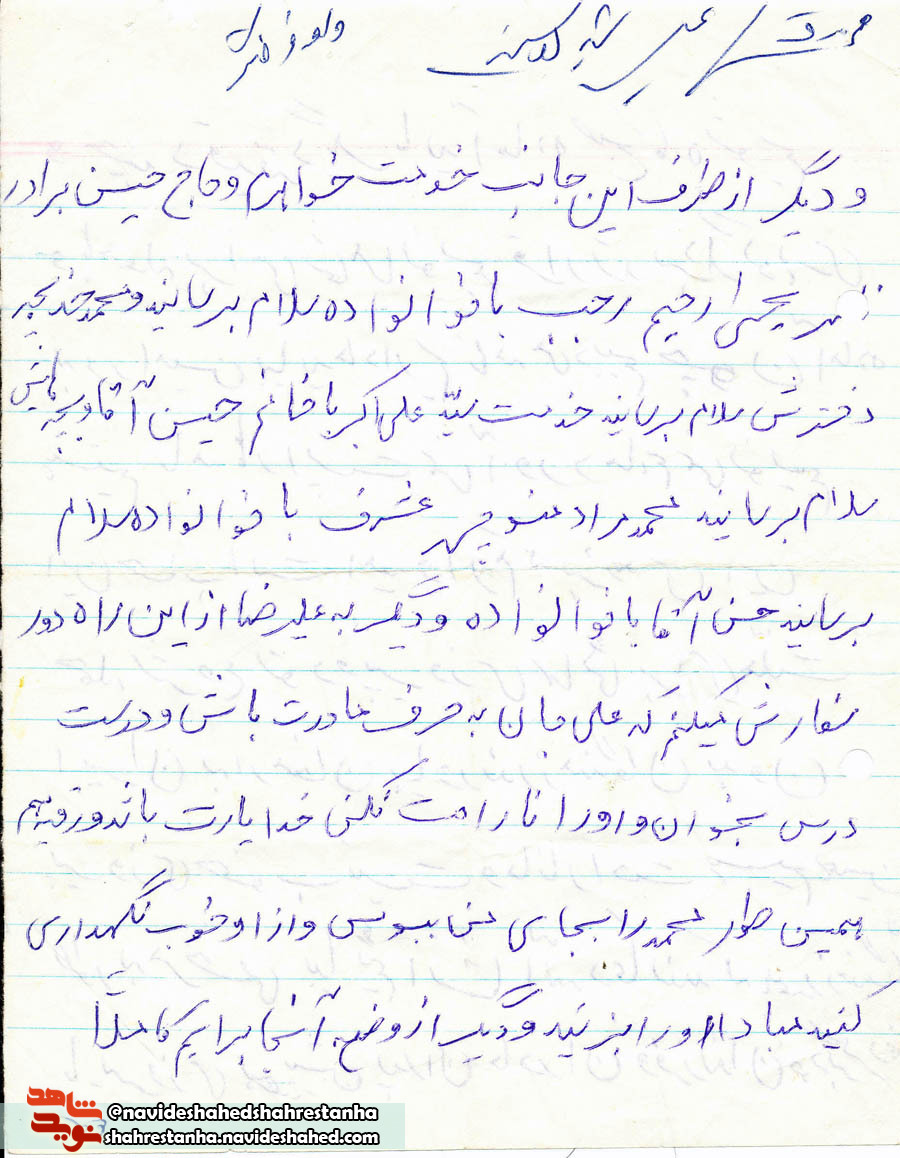 و دیگر از طرف این جانب خدمت خواهرم و حاج حسین برادر
یحیی رحیم رجب با خوانواده سلام برسانید و محمد خدیجه
دخترش سلام برسانید خدمت سید علی اکبر با خانم حسین آقا و بچه هایش
سلام برسانید محمدمراد منوچهر عشرف با خوانواده سلام
برسانید حسن آقا با خوانواده و دیگر به علیرضا از این راه دور
سفارش میکنم که علی جان به حرف مادرت باش و درست
درس بخوان و اورا ناراحت نکنی خدا یارت باشد و رقیه هم
همین طور محمد را بجای من ببوس و از او خوب نگهداری
کنید مبادا اورا بزنید و دیگر از وضع آنجا برایم کاملاً
شاهد
نوید
@navideshahedshahrestanha
shahrestanha.navideshahed.com